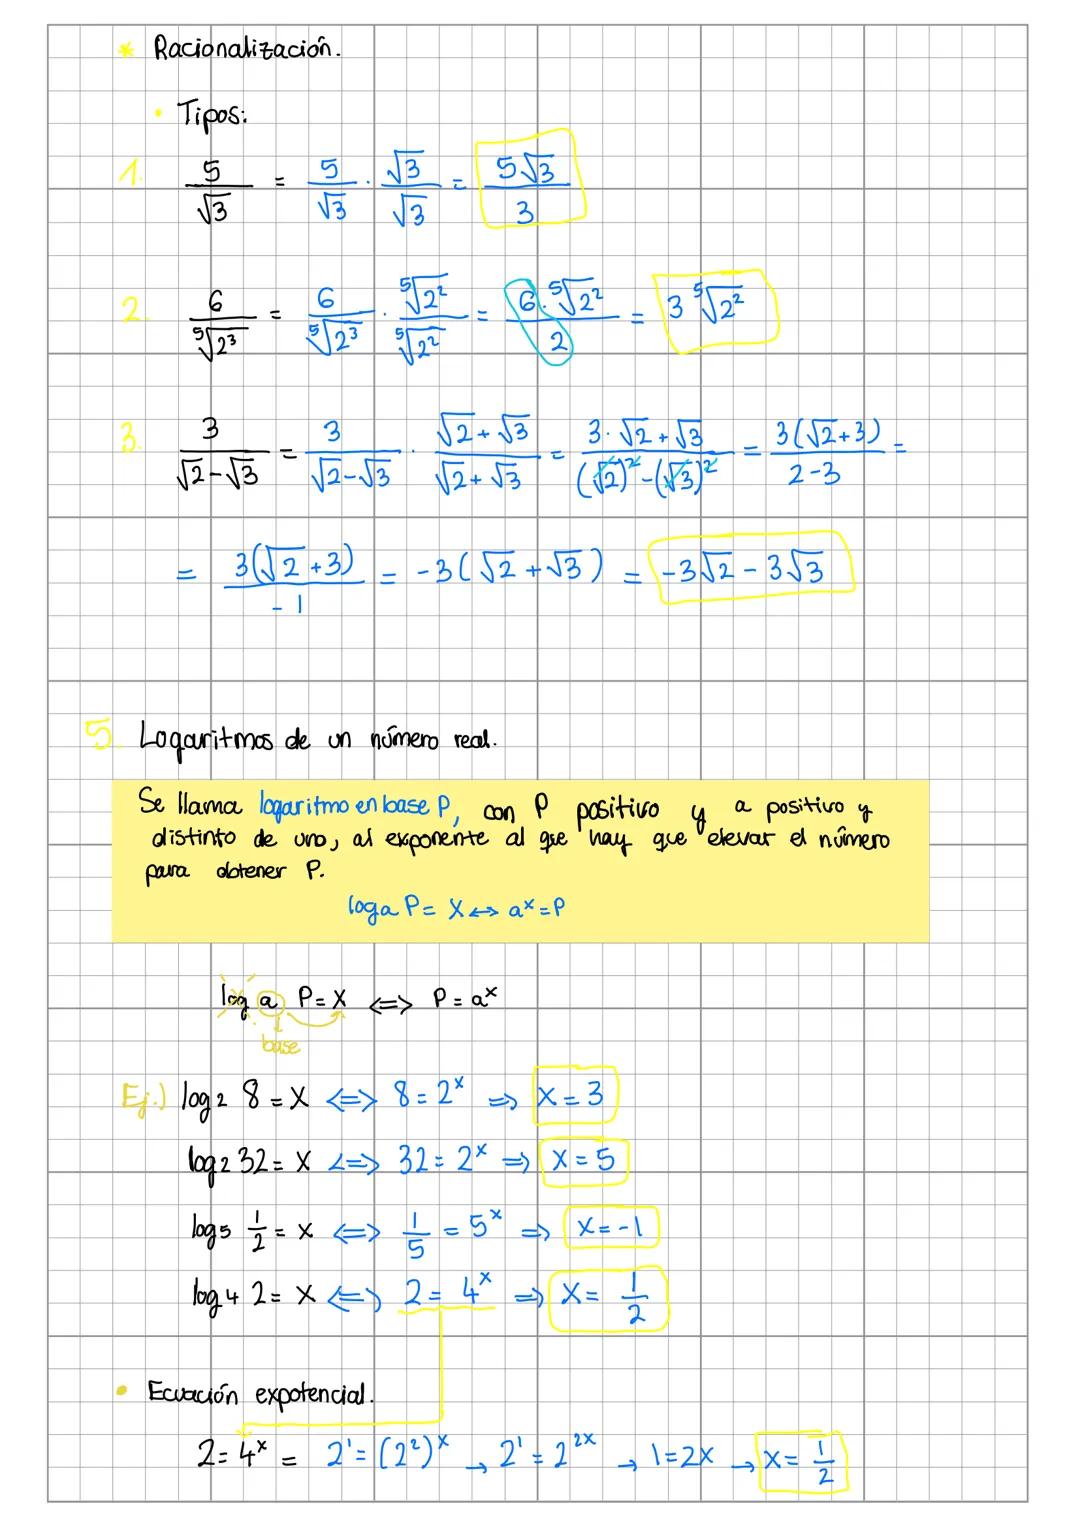 * Racionalización.
• Tipos:
1. 5/√3 = 5/√3 · √3/√3 = 5√3/3
2. 6/⁵√2³ = 6/⁵√2³ · ⁵√2²/⁵√2² = 6·⁵√2²/2 = 3 ⁵√2²
3. 3/(√2-√3) = 3/(√2-√3) · (√2+√3)/(√2+√3) = 3·√2+√3/((√2)²-(√3)²) = 3(√2+3)/(2-3) =
= 3(√2+3)/-1 = -3(√2+√3) = -3√2-3√3
5. Logaritmos de un número real.
Se llama logaritmo en base P, con P positivo y a positivo y
distinto de uno, al exponente al que hay que elevar el número
para obtener P.
loga P = X ↔ aˣ = P
log a P = X ⇔ P = aˣ
base
Ej.) log₂ 8 = X ⇔ 8 = 2ˣ ⇒ X = 3
log₂ 32 = X ⇔ 32 = 2ˣ ⇒ X = 5
log₅ 1/2 = X ⇔ 1/5 = 5ˣ ⇒ X = -1
log₄ 2 = X ⇔ 2 = 4ˣ ⇒ X = 1/2
• Ecuación expotencial.
2 = 4ˣ = 2¹ = (2²)ˣ → 2¹ = 2²ˣ → 1 = 2X → X = 1/2